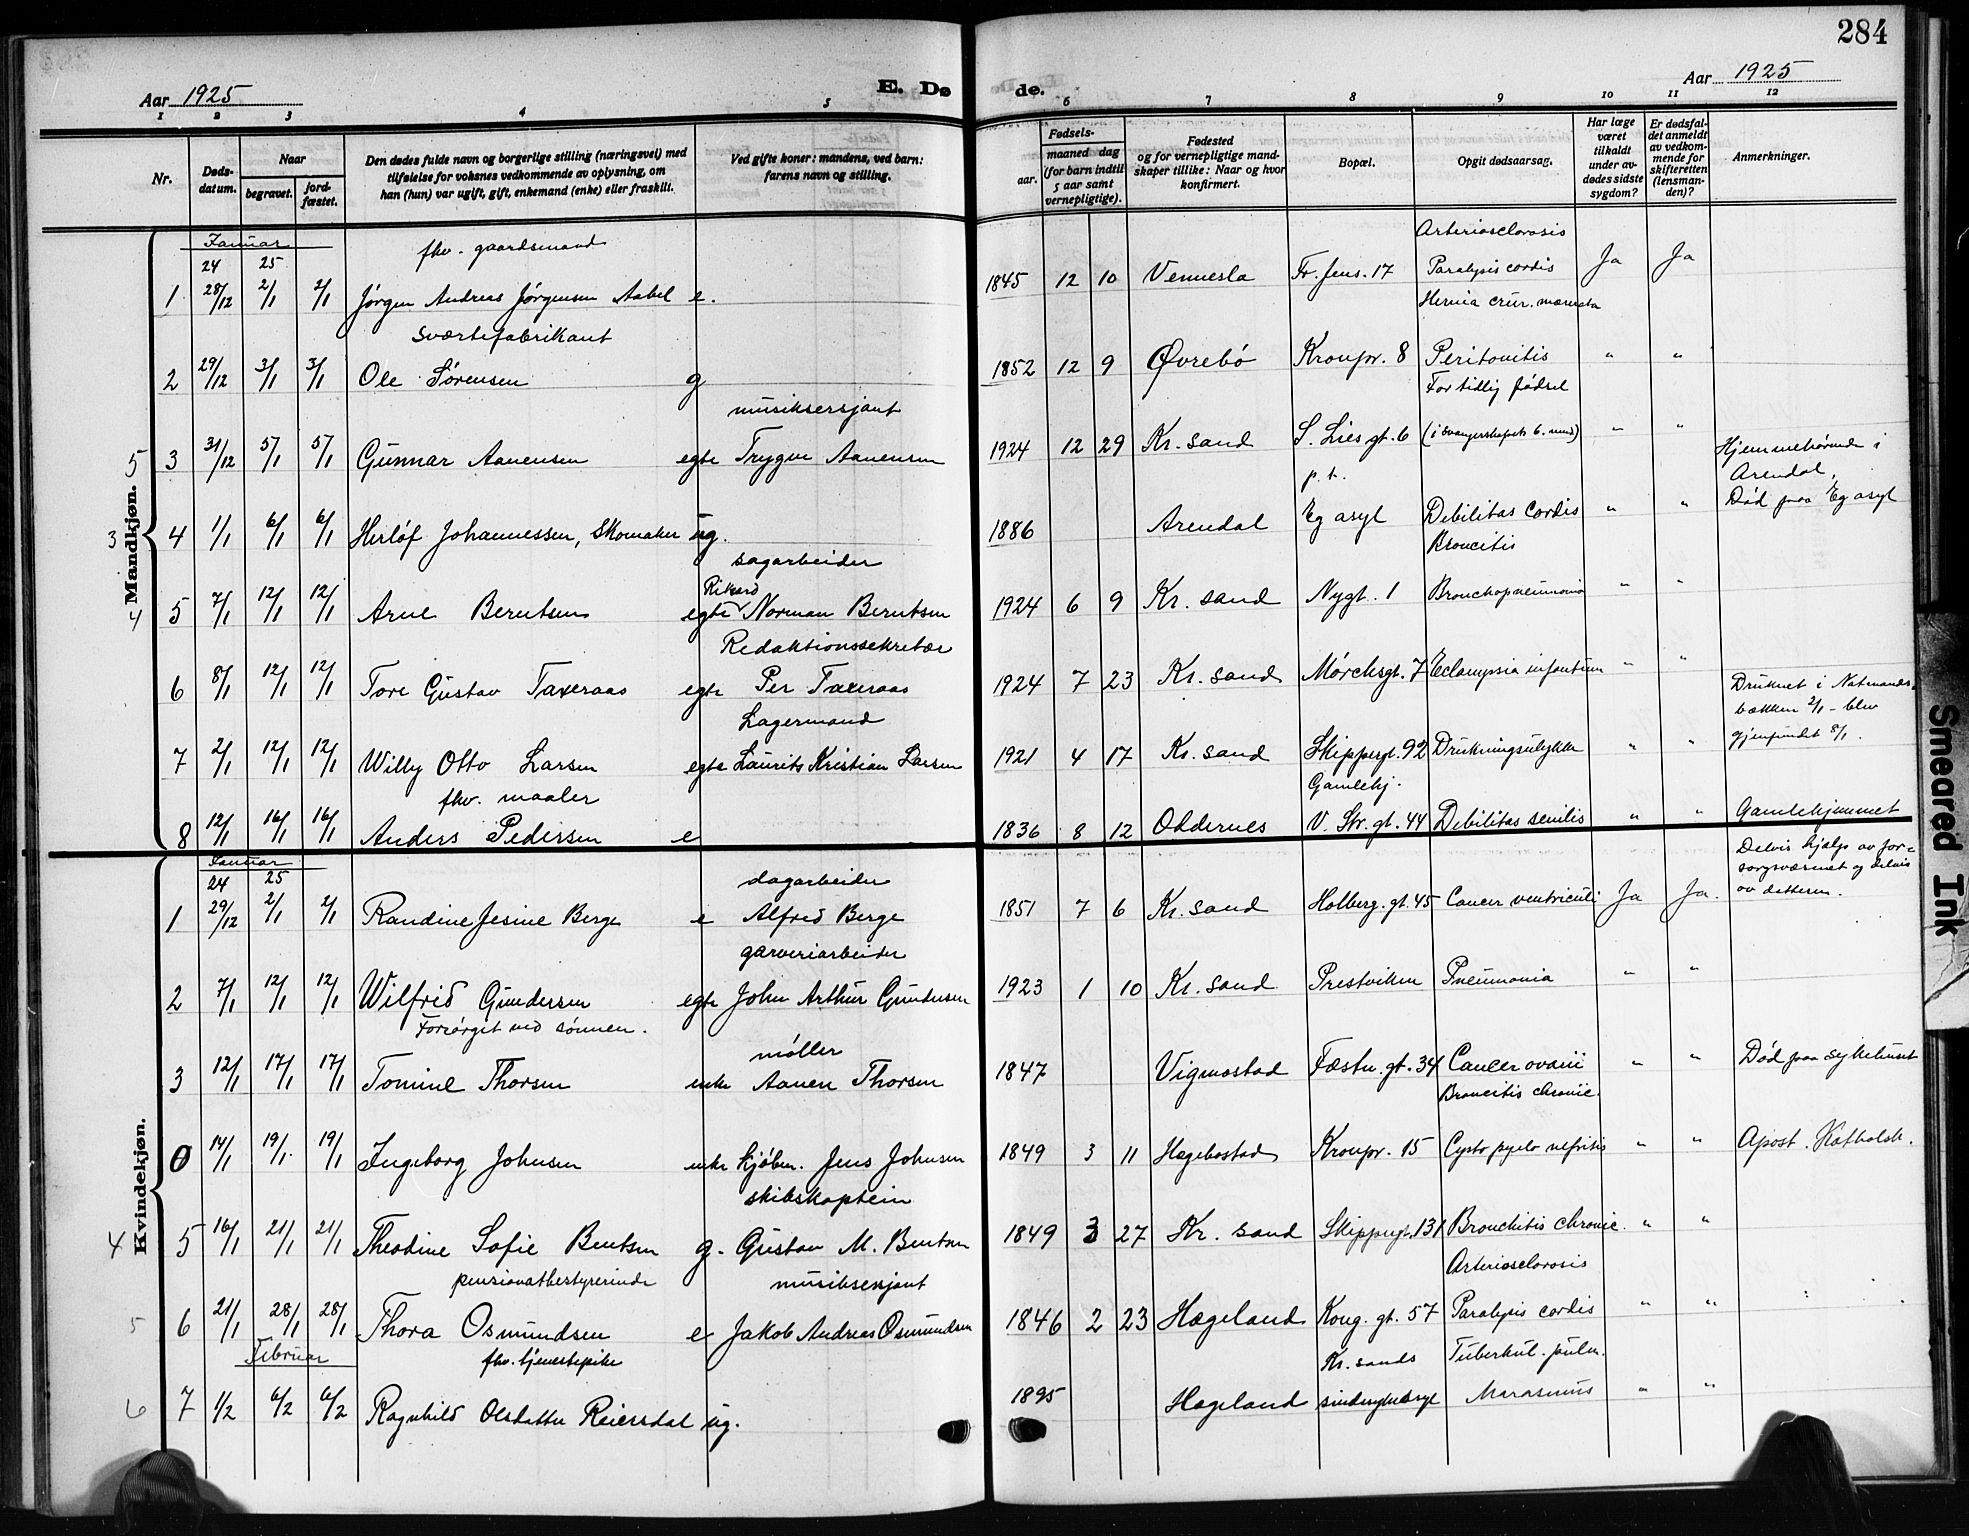 284
Aar 1925
E. Dø
de.
Aar 1925
1 2 3 4 5 6 7 8 9 10 11 12
Nr.
Døds-
datum.
Naar
begravet.
jord-
fæstet.
Den dødes fulde navn og borgerlige stilling (næringsvei) med
tilføielse for voksnes vedkommende av oplysning, om
han (hun) var ugift, gift, enkemand (enke) eller fraskilt.
Ved gifte koner: mandens, ved barn:
farens navn og stilling.
Fødsels-
aar.
maaned dag
(for barn indtil
5 aar samt
vernepligtige).
Fødested
og for vernepligtige mand-
skaper tillike: Naar og hvor
konfirmert.
Bopæl.
Opgit dødsaarsag.
Har læge
været
tilkaldt
under av-
dødes sidste
sygdom?
Er dødsfal-
det anmeldt
av vedkom-
mende for
skifteretten
(lensman-
den)?
Anmerkninger.
Mandkjøn.
Januar
24 25
fhv. gaardsmand
Arteriosclorosis
1 28/12 2/1 2/1 Jørgen Andreas Jørgensen Aabel e. 1845 12 10 Vennesla Fr. Jens. 17 Paralysis cordis Ja Ja
Hernia crur.
sværtefabrikant
2 29/12 3/1 3/1 Ole Sørensen g 1852 12 9 Øvrebø Kronpr. 8 Peritonitis " "
For tidlig fødsel
musiksersjant
5 3 31/12 5/1 5/1 Gunnar Aanensen egte Trygve Aanensen 1924 12 29 Kr. sand S. Lies gt. 6 (i svangerskapets 6. mnd) " "
p. t.
Hjemmehørende i
Arendal,
Død paa Eg asyl
3 4 1/1 6/1 6/1 Herlof Johannessen, Skomaker ug. 1886 Arendal Eg asyl Debilitas Cordis " "
Broncitis
sagarbeider
Rikard
4 5 7/1 12/1 12/1 Arne Berntsen egte Norman Berntsen 1924 6 9 Kr. sand Nygt. 1 Bronchopneumonia " "
Redaktionssekretær
6 8/1 12/1 12/1 Tore Gustav Taxeraas egte Per Taxeraas 1924 7 23 Kr. sand Mørchsgt. 7 Eclampsia infantum " "
Druknet i Natmands-
bækken 2/1 - blev
gjenfundet 8/1.
Lagermand
7 2/1 12/1 12/1 Willy Otto Larsen egte Laurits Kristian Larsen 1921 4 17 Kr. sand Skippergt. 92 Drukningsulykke " "
Gamlehj.
fhv. maaler
8 12/1 16/1 16/1 Anders Pedersen e 1836 8 12 Oddernes V. Str. gt. 44 Debilitas senilis " " Gamlehjemmet
Kvindekjøn.
Januar
24 25
dagarbeider
Delvis hjælp av for-
sorgsvæsenet og delvis
av datteren.
1 29/12 2/1 2/1 Randine Jesine Berge e Alfred Berge 1851 7 6 Kr. sand Holberg. gt. 45 Cancer ventriculi Ja Ja.
garveriarbeider
2 7/1 12/1 12/1 Wilfrid Gundersen egte John Arthur Gundersen 1923 1 10 Kr. sand Prestviken Pneumonia " "
Forsørget ved sønnen.
møller
3 12/1 17/1 17/1 Tomine Thorsen enke Aanen Thorsen 1847 Vigmostad Fæstn. gt. 34 Cancer ovarii " " Død paa sykehuset
Broncitis chronic.
0 14/1 19/1 19/1 Ingeborg Johnsen enke kjøbm. Jens Johnsen 1849 3 11 Hægebostad Kronpr. 15 Cysto pyelo nefritis " " Apost. Katholsk.
skibskaptein
4 5 16/1 21/1 21/1 Theodine Sofie Bentsen g. Gustav M. Bentsen 1849 3 27 Kr. sand Skippergt. 131 Bronchitis chronic. " "
pensionatbestyrerinde
musiksersjant
Arteriosclorosis
5 6 21/1 28/1 28/1 Thora Osmundsen e Jakob Andreas Osmundsen 1846 2 23 Hægeland Kong. gt. 57 Paralysis cordis " "
Februar
fhv. tjenestepike
Kr. sands
Tuberkul. pulm.
6 7 1/2 6/2 6/2 Ragnhild Olsdatter Reiersdal ug. 1895 Hægeland sindssykeasyl Marasmus " "
Smeared Ink